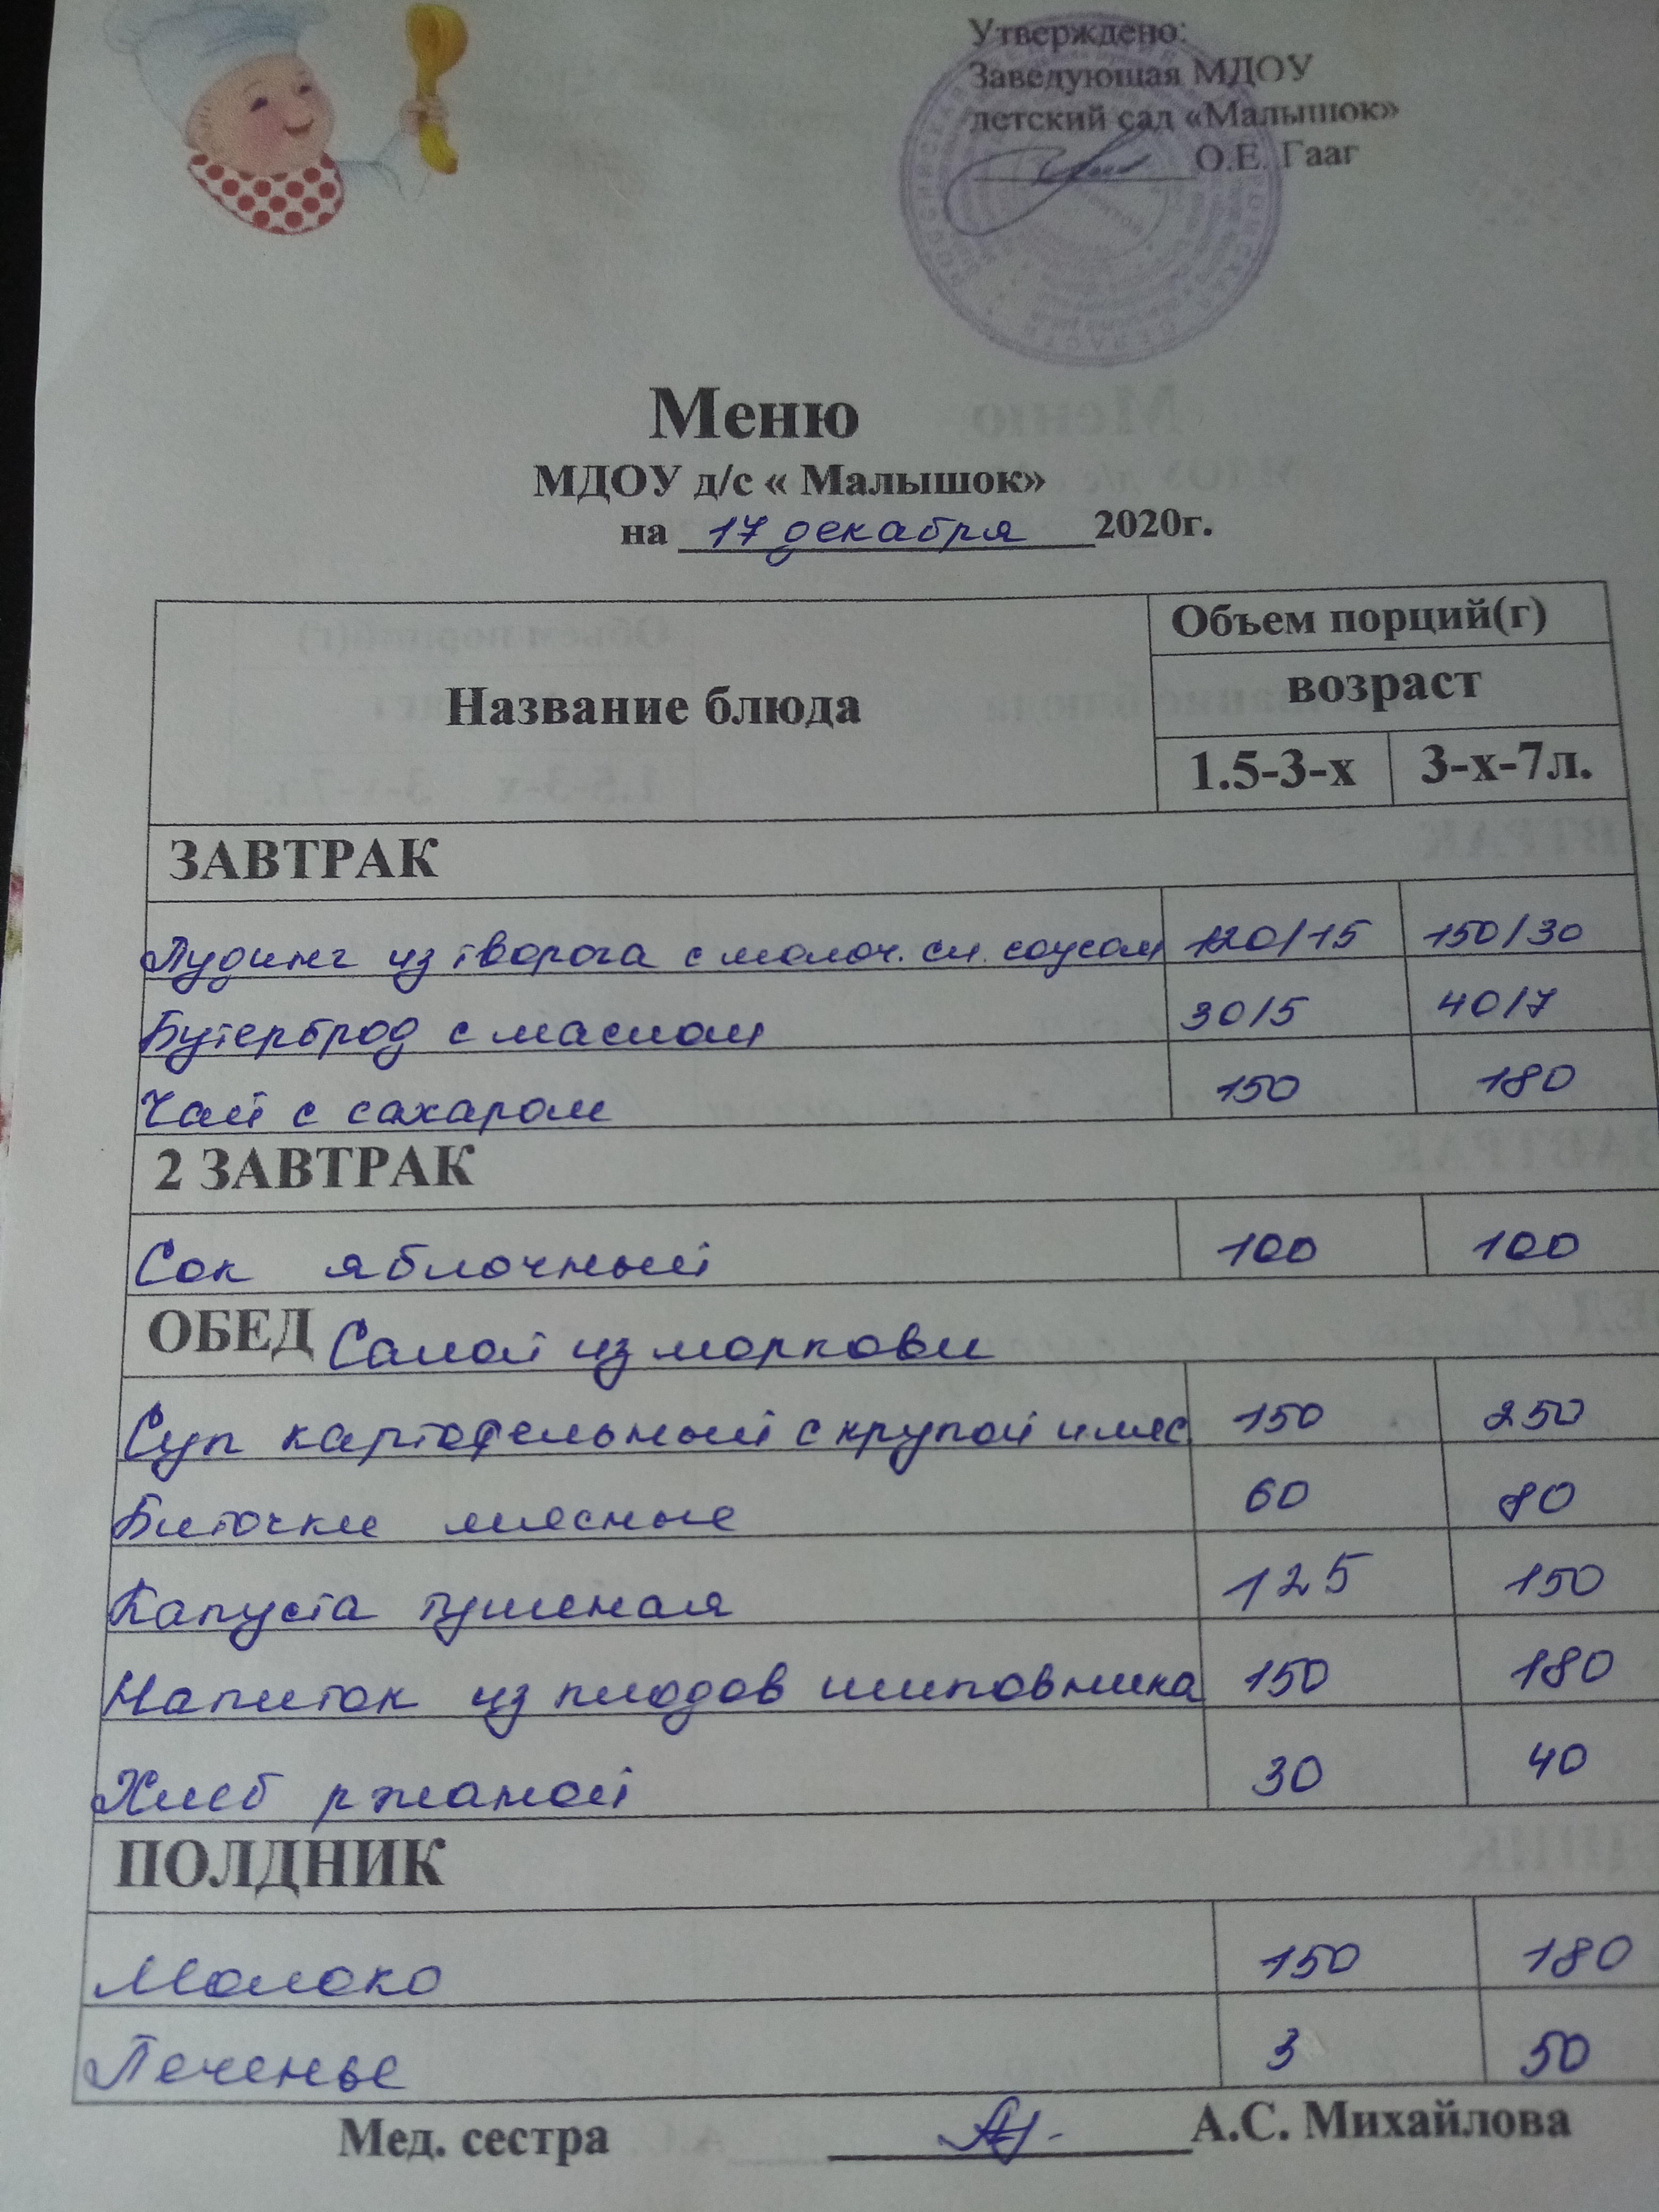 Утверждено:
Заведующая МДОУ
детский сад «Малышок»
О.Е. Гааг
Меню
МДОУ д/с « Малышок»
на 17 декабря 2020г.
Название блюда
Объем порций(г)
возраст
1.5-3-х 3-х-7л.
ЗАВТРАК
Пудинг из творога с молоч. сл. соусом 120/15 150/30
Бутерброд с маслом 30/5 40/7
Чай с сахаром 150 180
2 ЗАВТРАК
Сок яблочный 100 100
ОБЕД Салат из моркови
Суп картофельный с крупой и мяс 150 250
Биточки мясные 60 80
Капуста тушеная 125 150
Напиток из плодов шиповника 150 180
Хлеб ржаной 30 40
ПОЛДНИК
Молоко 150 180
Печенье 3 50
Мед. сестра А.С. Михайлова